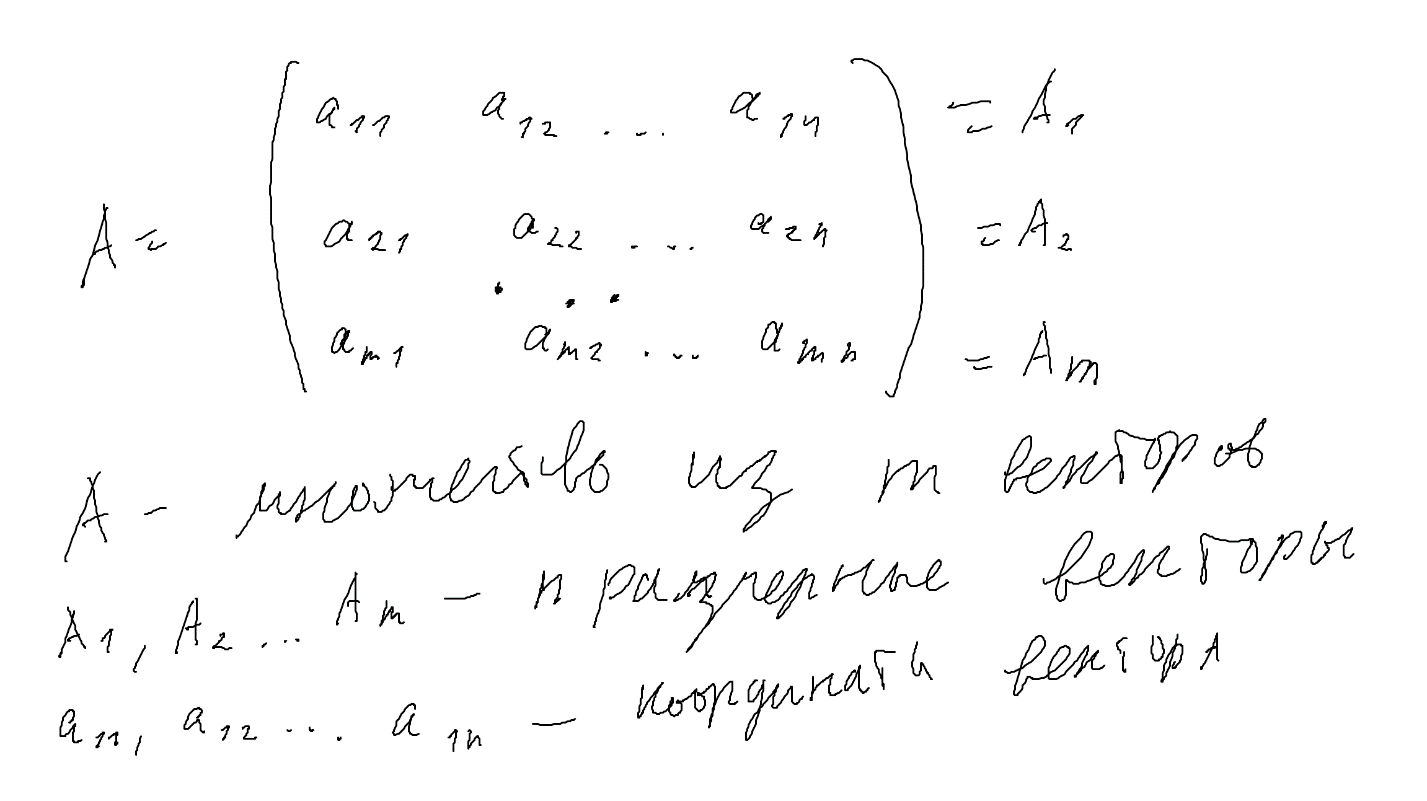 a11 a12 ... a1n = A1
A = a21 a22 ... a2n = A2
...
am1 am2 ... amn = Am
A - множество из m векторов
A1, A2 ... Am - n размерные векторы
a11, a12 ... a1n - координаты вектора